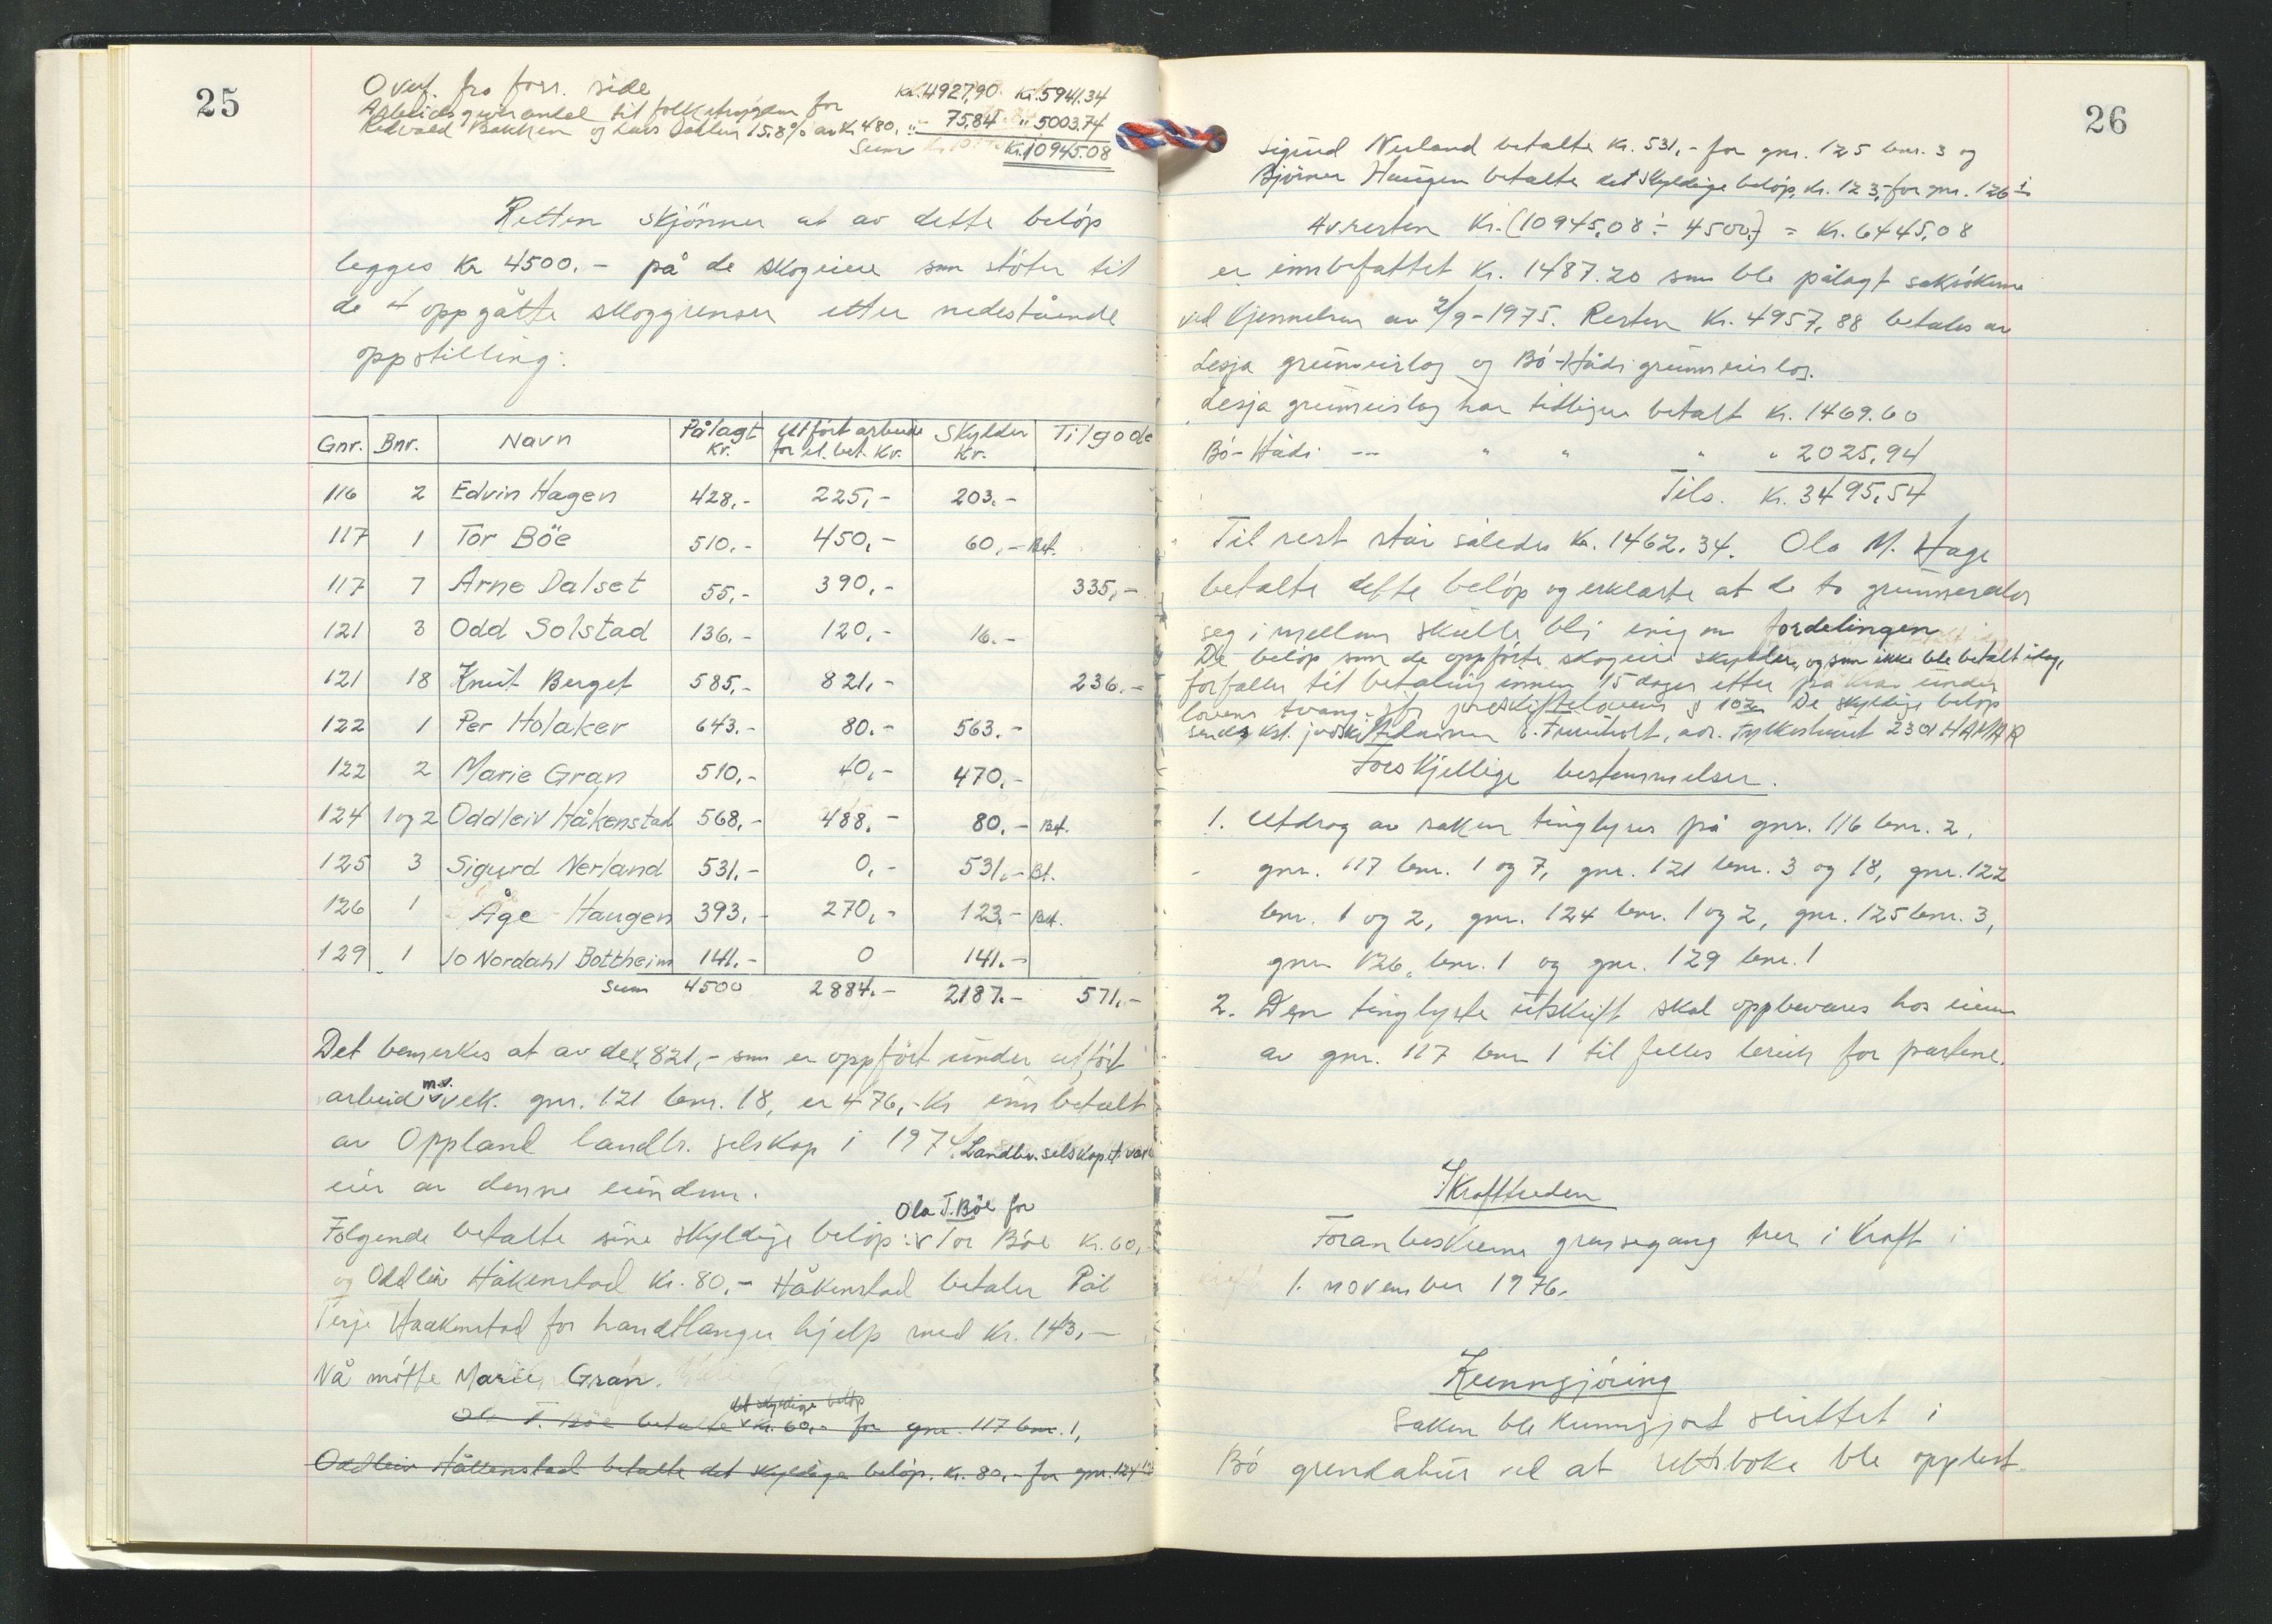 25
Overf. fra forr. side Kr. 4927,90 Kr. 5941.34
Arbeidsgiverandel til folketrygden for
Redvald Bakken og Lars Dahlen 15.8% av Kr 480, " - 75,84 " 5003.74
Sum Kr. 10945.08
Retten skjönner at av dette belöp
legges Kr 4500.- på de skogeiere som stöter til
de 4 oppgåtte skoggrenser etter nedestående
oppstilling:
Gnr. Bnr. Navn Pålagt Kr. Utfört arbeide for el. bet. Kr. Skylder Kr. Tilgode
116 2 Edvin Hagen 428,- 225,- 203.-
117 1 Tor Böe 510.- 450,- 60,- Bet.
117 7 Arne Dalset 55.- 390,- 335,-
121 3 Odd Solstad 136.- 120,- 16.-
121 18 Knut Berget 585,- 821,- 236.-
122 1 Per Holaker 643.- 80.- 563.-
122 2 Marie Gran 510,- 40,- 470,-
124 1 og 2 Oddleiv Håkenstad 568,- 488,- 80,- Bet.
125 3 Sigurd Nerland 531.- 0,- 531,- Bt.
126 1 Åge Haugen 393,- 270,- 123.- Bet.
129 1 Jo Nordahl Bottheim 141.- 0 141.-
Sum 4500 2884.- 2187.- 571.-
Det bemerkes at av de k 821,- som er oppfört under utfört
arbeid m.v. vek. gnr. 121 bnr. 18, er 476,- Kr innbetalt
av Oppland landbr. selskap i 1974. Landbr. selskapet var
eier av denne eiendom.
Fölgende betalte sine skyldige belöp: Ola T. Böe for Tor Böe Kr. 60,-
og Oddleiv Håkenstad Kr. 80,- Håkenstad betaler Pål
Terje Haakenstad for handtlanger hjelp med Kr. 143,-
Nå mötte Marie Gran.
Ola T. Böe betalte det skyldige belöp Kr. 60,- for gnr. 117 bnr. 1,
Oddleiv Håkenstad betalte det skyldige belöp, Kr. 80,- for gnr. 124
26
Sigurd Nerland betalte Kr. 531,- for gnr. 125 bnr. 3 og
Bjørner Haugen betalte det skyldige belöp, Kr. 123,- for gnr. 126 1
Av resten Kr. (10945,08 ÷ 4500,-) = Kr. 6445,08
er innbefattet Kr. 1487.20 som ble pålagt saksökerne
ved kjennelsen av 2/9-1975. Resten Kr. 4957,88 betales av
Lesja grunneierlag og Bö-Hådi grunneierlag.
Lesja grunneierlag har tidligere betalt Kr. 1469.60
Bö-Hådi -- " " " " 2025,94
Tils. Kr. 3495,54
Til rest står således Kr. 1462.34. Ola M. Hage
betalte dette belöp og erklærte at de to grunneierlag
seg i mellom skulle bli enig om fordelingen
De belöp som de oppförte skogeiere skylder, og som ikke ble betalt idag,
forfaller til betaling innen 15 dager etter påkrav under
lovens tvang, jfr jordskiftelovens § 102. De skyldige belöp
sendes kst. jordskiftedommer E. Furuholt, adr. Fylkeshuset 2300 HAMAR
Forskjellige bestemmelser.
1. Utdrag av saken tinglyses på gnr. 116 bnr. 2,
gnr. 117 bnr. 1 og 7, gnr. 121 bnr. 3 og 18, gnr. 122
bnr. 1 og 2, gnr. 124 bnr. 1 og 2, gnr. 125 bnr. 3,
gnr 126, bnr. 1 og gnr. 129 bnr. 1
2. Den tinglyste utskrift skal oppbevares hos eieren
av gnr. 117 bnr 1 til felles bruk for partene.
Ikrafttreden
Foranbeskrevne grensegang trer i kraft
1. november 1976.
Kunngjöring
Saken ble kunngjort sluttet i
Bö grendahus ved at rettsboka ble opplest.